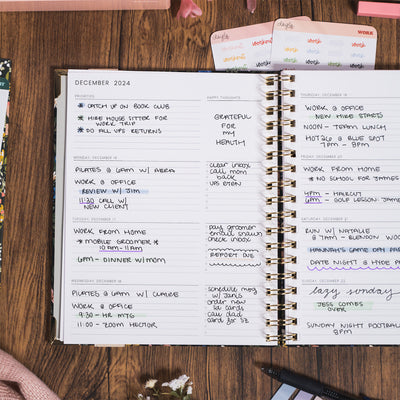 DECEMBER 2024
PRIORITIES
* CATCH UP ON BOOK CLUB
* HIRE HOUSE SITTER FOR
WORK TRIP
* DO ALL UPS RETURNS
HAPPY THOUGHTS
GRATEFUL
FOR
MY
HEALTH
MONDAY, DECEMBER 16
PILATES @ 6AM W/
WORK @ OFFICE
REVIEW W/ JIM
11:30 CALL W/
NEW CLIENT
clear inbox
call mom
back
TUESDAY, DECEMBER 17
WORK FROM HOME
* MOBILE GROOMER *
10AM-11AM
6PM - DINNER W/MOM
pay groomer
email shawn
check inbox
REPORT DUE
WEDNESDAY, DECEMBER 18
PILATES @ 6AM W/ CLAIRE
WORK @ OFFICE
9:30 - HR MTG
11:00 - ZOOM HECTOR
schedule mtg
w/
order new
call dad
card for
THURSDAY, DECEMBER 19
WORK @ OFFICE
NEW HIRE STARTS
NOON - TEAM LUNCH
@ BLUE SPOT
7PM - 9PM
FRIDAY, DECEMBER 20
WORK FROM HOME
* NO SCHOOL FOR JAMES
4PM - HAIRCUT
6PM - GOLF LESSON JAMES
SATURDAY, DECEMBER 21
RUN W/ NATALIE
@ 7AM -
HANNAH'S GAME DAY
DATE NIGHT @ HYDE
SUNDAY, DECEMBER 22
lazy sunday
JESS COMES
OVER
SUNDAY NIGHT FOOTBALL
8PM
WORK